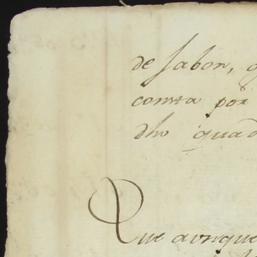 de Jabon, q
consta por
dho quad
Que aunque